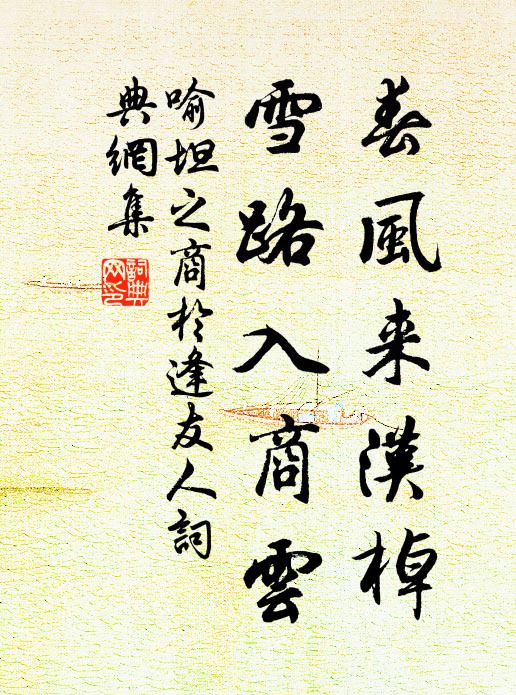 春風来漢棹
雪路入商雲
喻坦之商於逢友人詞
典網集
詞典
网印